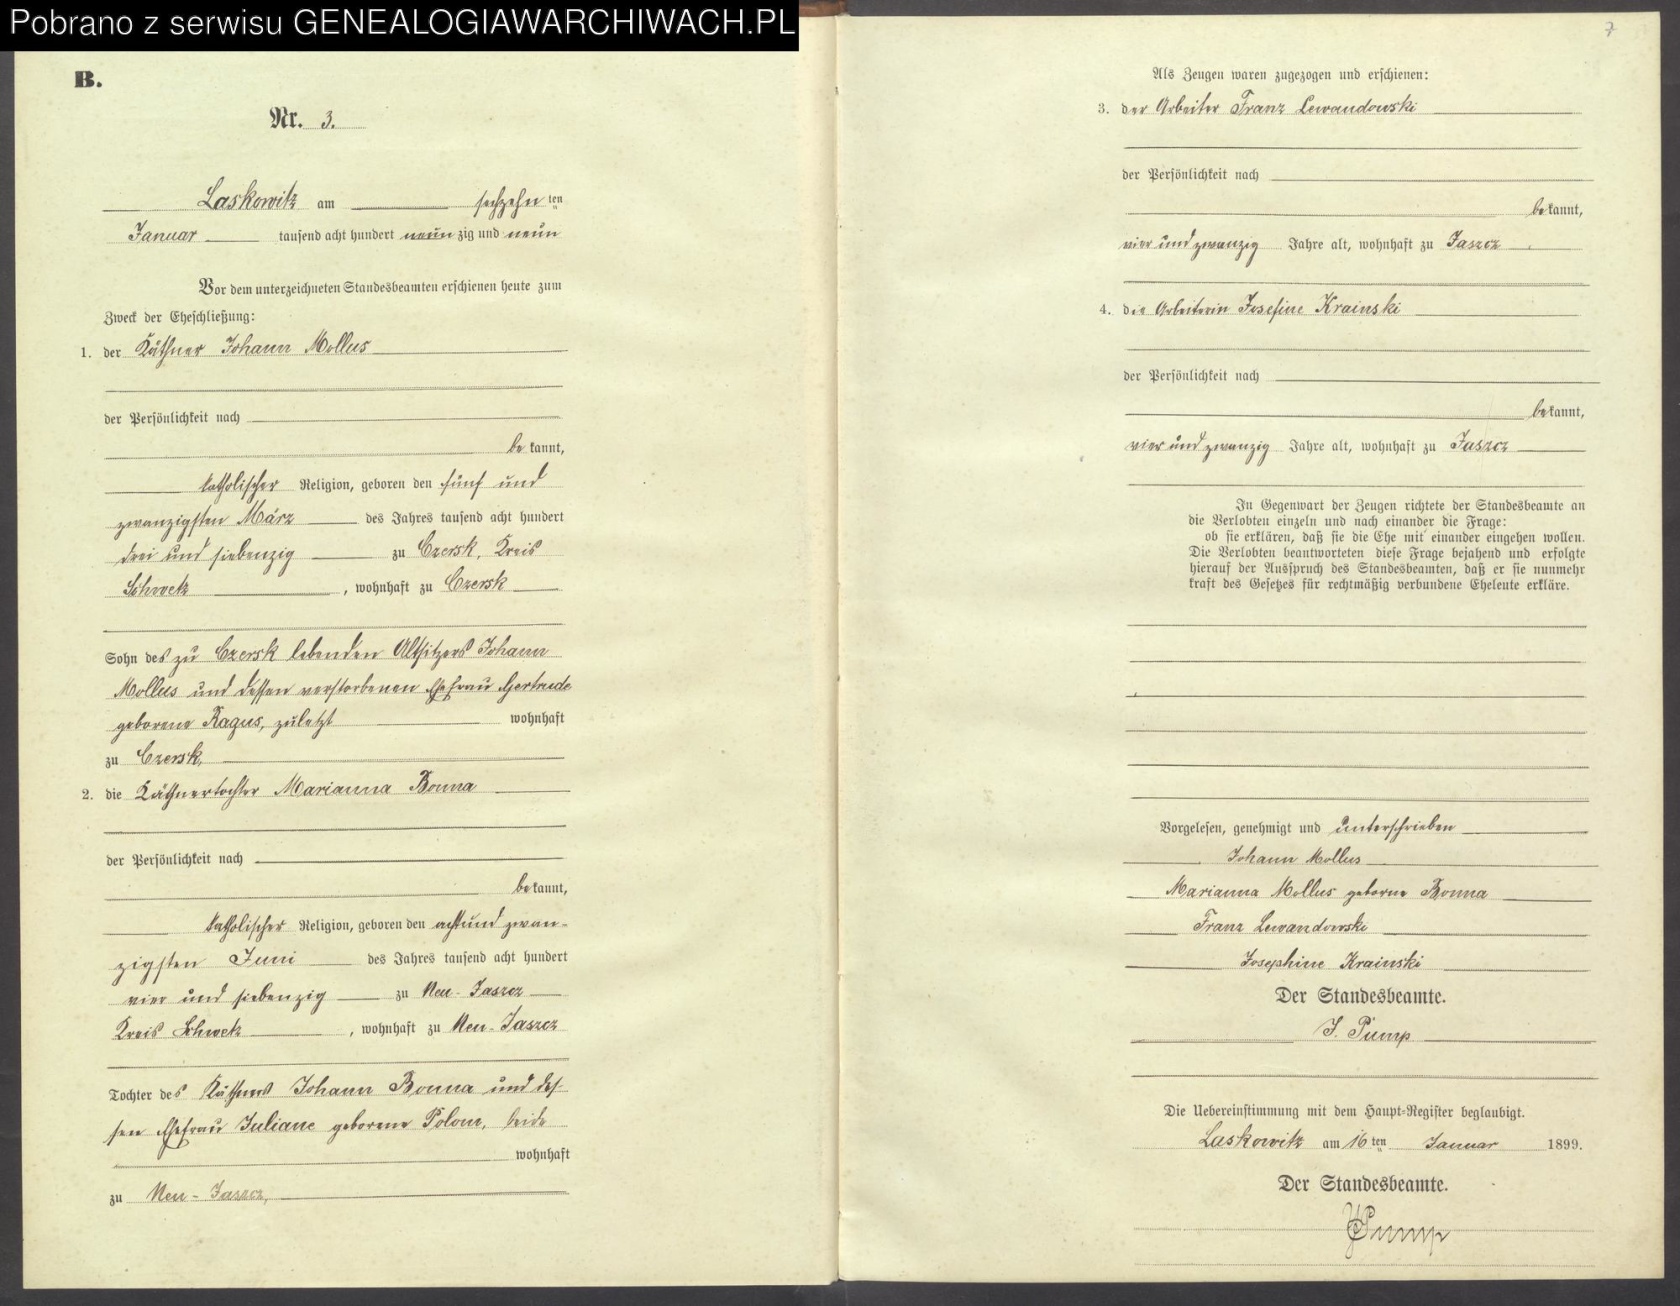 Pobrano z serwisu GENEALOGIAWARCHIWACH.PL
B.
Nr. 3.
Laskowitz am sechzehn ten
Januar tausend acht hundert neun zig und neun
Vor dem unterzeichneten Standesbeamten erschienen heute zum
Zweck der Eheschließung:
1. der Käthner Johann Mollus
der Persönlichkeit nach
be kannt,
katholischer Religion, geboren den fünf und
zwanzigsten März des Jahres tausend acht hundert
drei und siebenzig zu Czersk, Kreis
Schwetz, wohnhaft zu Czersk
Sohn des zu Czersk lebenden Altsitzers Johann
Mollus und dessen verstorbenen Ehefrau Gertrude
geborene Ragus, zuletzt wohnhaft
zu Czersk,
2. die Käthnertochter Marianna Bonna
der Persönlichkeit nach
be kannt,
katholischer Religion, geboren den acht und zwan-
zigsten Juni des Jahres tausend acht hundert
vier und siebenzig zu Neu-Jaszcz
Kreis Schwetz, wohnhaft zu Neu-Jaszcz
Tochter des Käthners Johann Bonna und des-
sen Ehefrau Juliane geborene Polom, beide
wohnhaft
zu Neu-Jaszcz,
7
Als Zeugen waren zugezogen und erschienen:
3. der Arbeiter Franz Lewandowski
der Persönlichkeit nach
be kannt,
vier und zwanzig Jahre alt, wohnhaft zu Jaszcz
4. die Arbeiterin Josefine Krainski
der Persönlichkeit nach
be kannt,
vier und zwanzig Jahre alt, wohnhaft zu Jaszcz
In Gegenwart der Zeugen richtete der Standesbeamte an
die Verlobten einzeln und nach einander die Frage:
ob sie erklären, daß sie die Ehe mit einander eingehen wollen.
Die Verlobten beantworteten diese Frage bejahend und erfolgte
hierauf der Ausspruch des Standesbeamten, daß er sie nunmehr
kraft des Gesetzes für rechtmäßig verbundene Eheleute erkläre.
Vorgelesen, genehmigt und unterschrieben
Johann Mollus
Marianna Mollus geborne Bonna
Franz Lewandowski
Josephine Krainski
Der Standesbeamte.
J. Pump
Die Uebereinstimmung mit dem Haupt-Register beglaubigt.
Laskowitz am 16 ten Januar 1899.
Der Standesbeamte.
J Pump